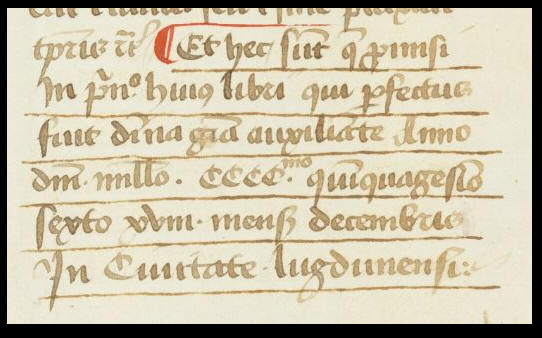 tp̄ris ⁊c̄ ¶ Et hec sūt q̄ ꝓmisi
In pͥnº huius libri qui ꝑfectus
fuit diīna gr̄a auxiliāte Anno
dn̄i · mill̄o · CCCC.mo quīquagesīo
sexto xviii · mens̄ decembris
In Ciuitate lugdunensi :